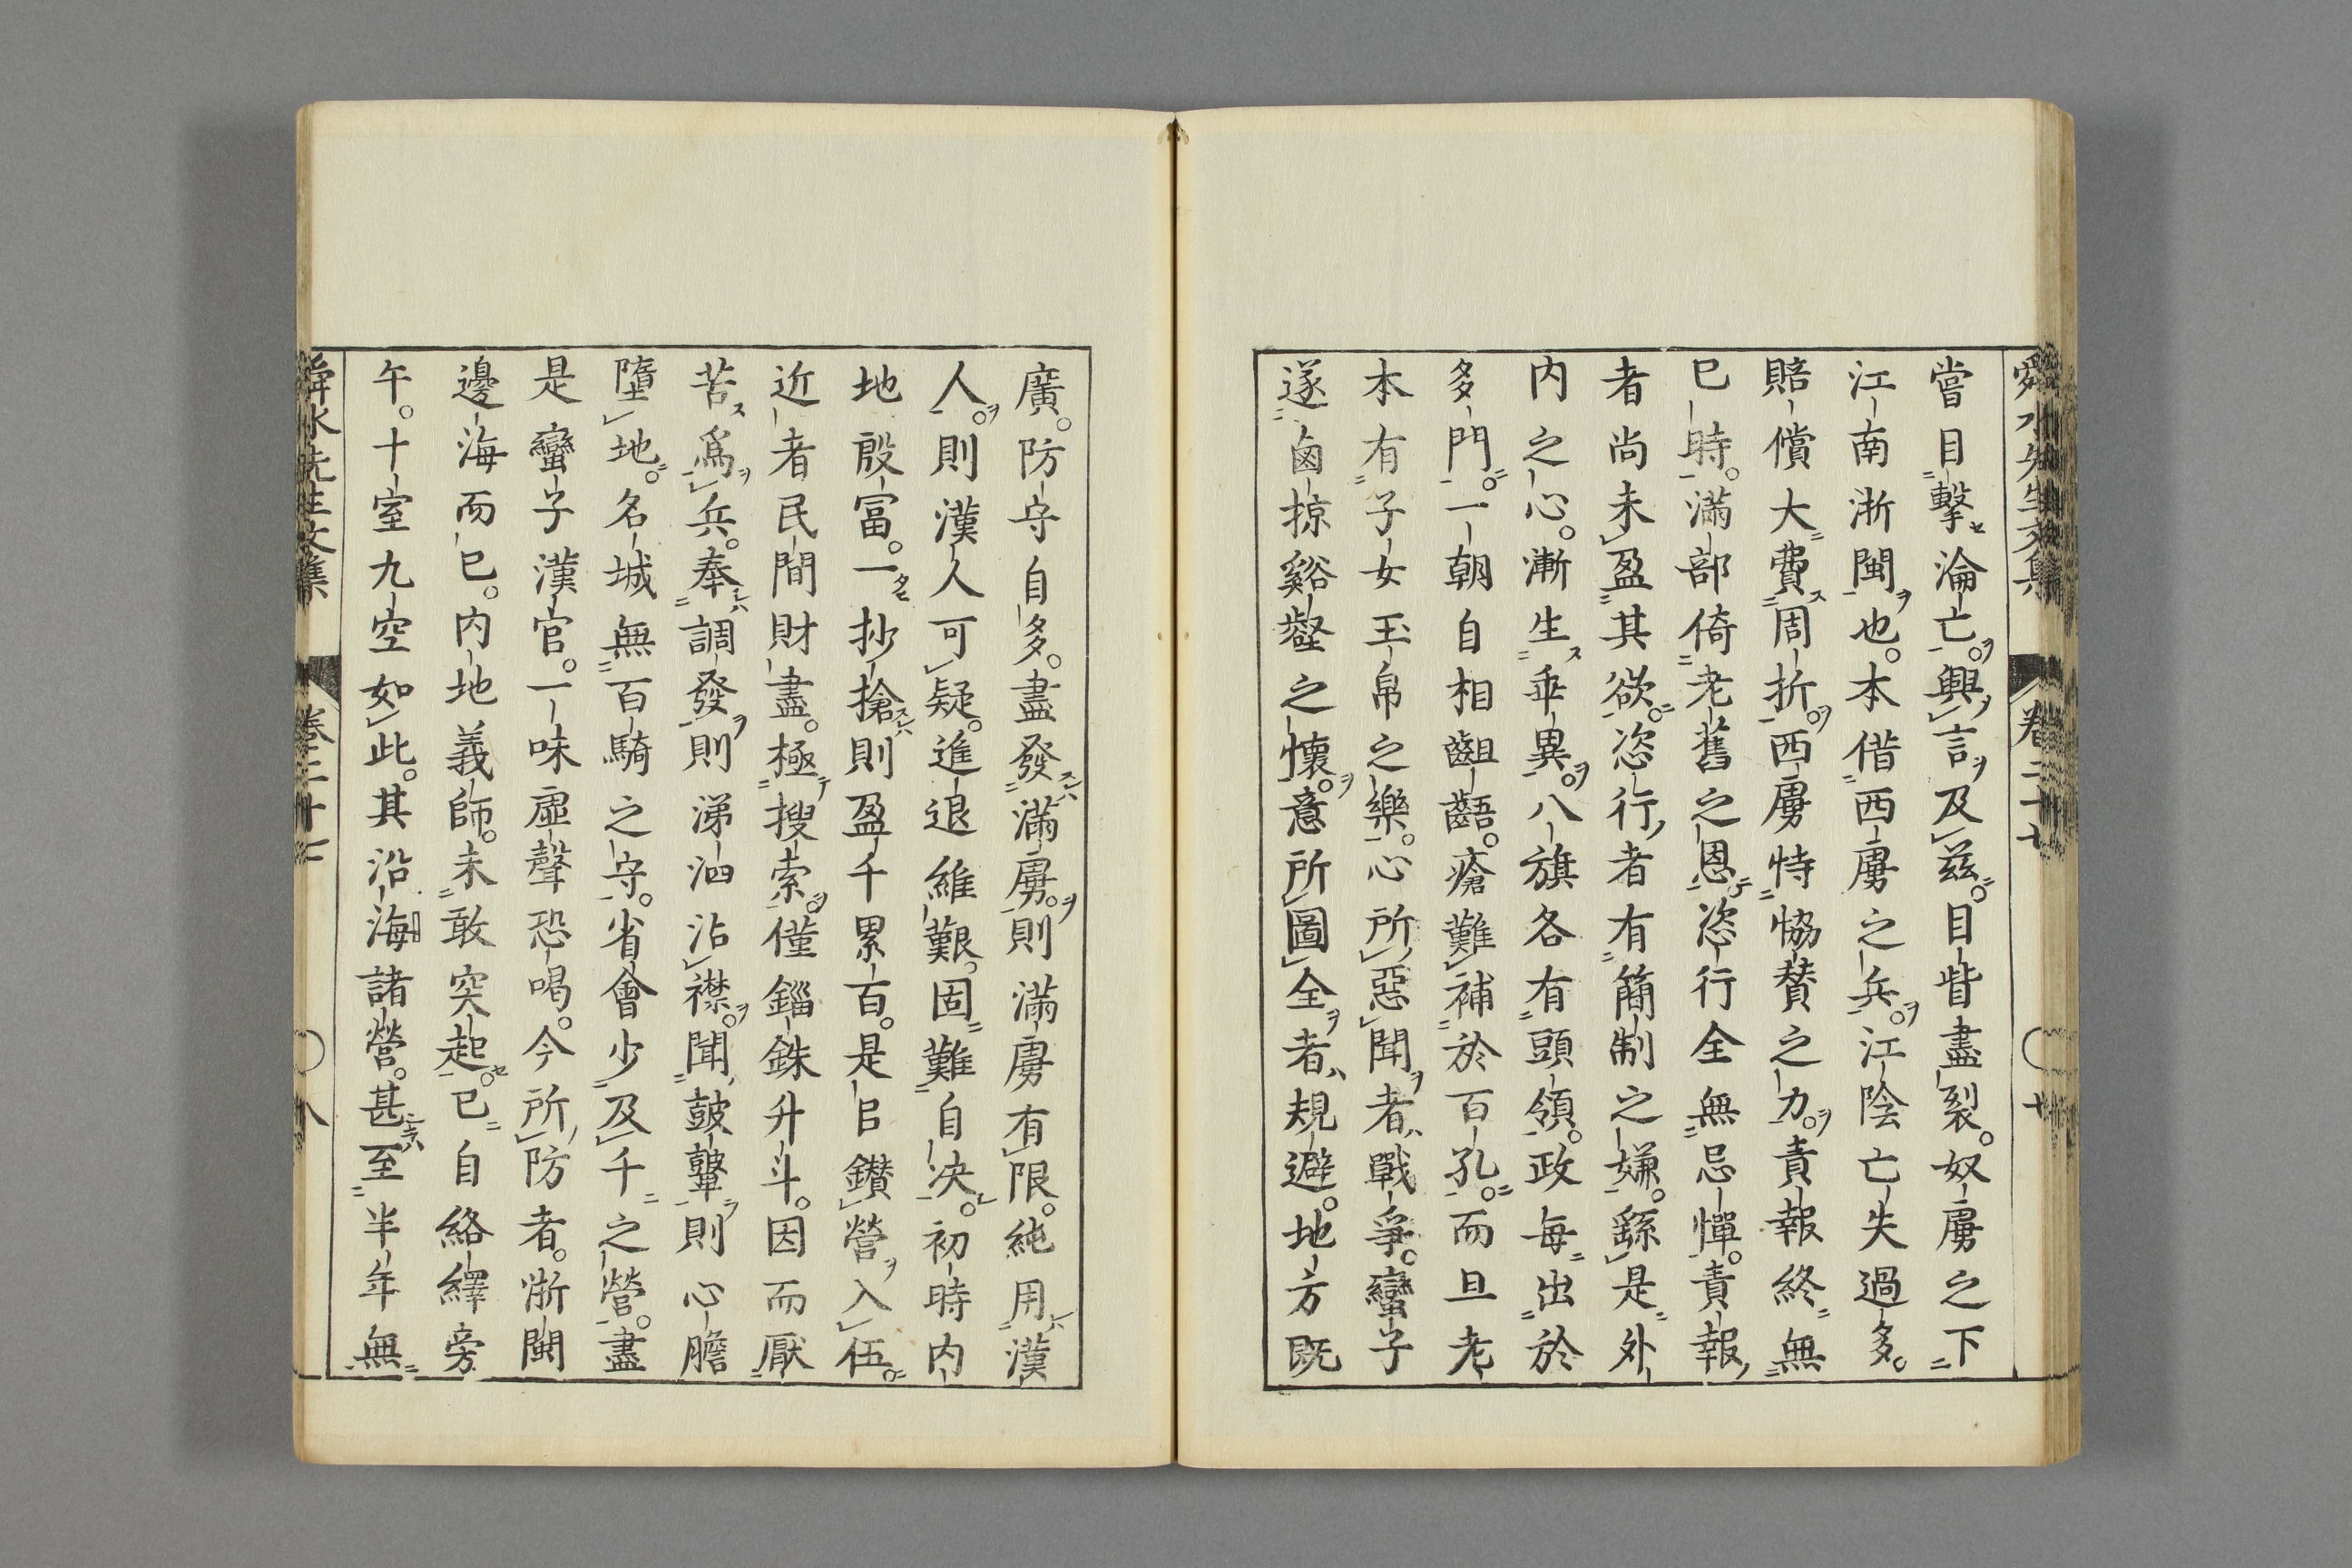 舜水先生文集　卷二十七
嘗目擊淪亡。興言及茲。目眥盡裂。奴虜之下
江南浙閩也。本借西虜之兵。江陰亡失過多。
賠償大費周折。西虜恃恊贊之力。責報終無
已時。滿部倚老舊之恩。恣行全無忌憚。責報
者尚未盈其欲。恣行者有簡制之嫌。繇是外
内之心。漸生乖異。八旗各有頭領。政每出於
多門。一朝自相齟齬。瘡難補於百孔。而且老
本有子女玉帛之樂。心所惡聞者戰爭。蠻子
遂鹵掠谿壑之懷。意所圖全者規避。地方既
廣。防守自多。盡發滿虜。則滿虜有限。純用漢
人。則漢人可疑。進退維艱。固難自决。初時内
地殷富。一抄搶則盈千累百。是㠯鑽營入伍。
近者民間財盡。極搜索。僅錙銖升斗。因而厭
苦爲兵。奉調發則涕泗沾襟。聞鼓鼙則心膽
墮地。名城無百騎之守。省會少及千之營。盡
是蠻子漢官。一味虛聲恐喝。今所防者。浙閩
邊海而已。内地義師。未敢突起。已自絡繹旁
午。十室九空如此。其沿海諸營。甚至半年無
舜水先生文集　卷二十七　八